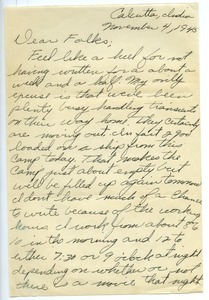 Calcutta, India
November 4, 1945
Dear Folks,
Feel like a heel for not
having written for a about a
week and a half. My only
excuse is that we've been
plenty busy handling transients
on their way home. They certainly
are moving out. In fact a 900
loaded on a ship from this
camp today. That makes the
camp just about empty but
will be filled up again tomorrow
I don't have much of a chance
to write because of the working
hours I work from about 8 to
10 in the morning and 12 to
either 7:30 or 9 o'clock at night
depending on whether or not
there is a movie that night